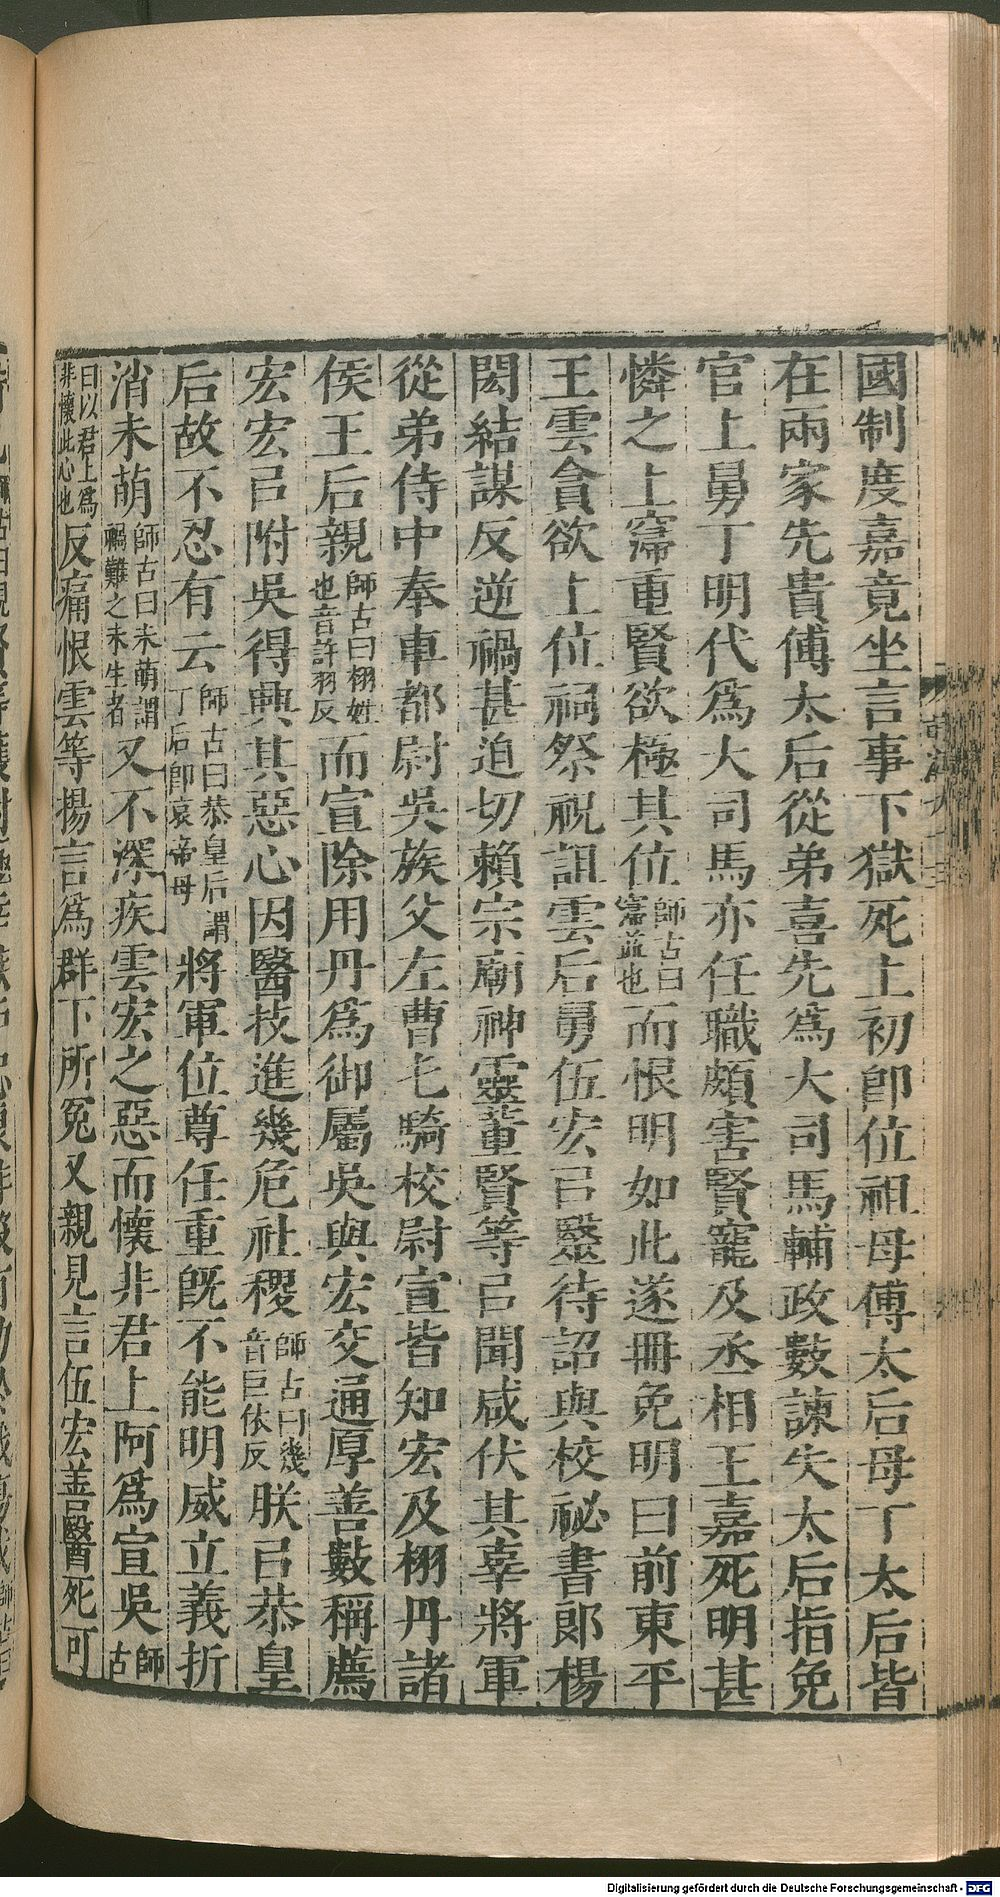 國制度嘉竟坐言事下獄死上初卽位祖母傅太后母丁太后皆
在兩家先貴傅太后從弟喜先爲大司馬輔政數諫失太后指免
官上舅丁明代爲大司馬亦任職頗害賢寵及丞相王嘉死明甚
憐之上寖重賢欲極其位師古曰寖益也而恨明如此遂冊免明曰前東平
王雲貪欲上位祠祭祝詛雲后舅伍宏㠯醫待詔與校祕書郞楊
閎結謀反逆禍甚迫切賴宗廟神靈董賢等㠯聞咸伏其辜將軍
從弟侍中奉車都尉吳族父左曹屯騎校尉宣皆知宏及栩丹諸
侯王后親師古曰栩姓也音許羽反而宣除用丹爲御屬吳與宏交通厚善數稱薦
宏宏㠯附吳得興其惡心因醫技進幾危社稷師古曰幾音巨依反朕㠯恭皇
后故不忍有云師古曰恭皇后謂丁后卽哀帝母將軍位尊任重旣不能明威立義折
消未萌師古曰未萌謂禍難之未生者又不深疾雲宏之惡而懷非君上阿爲宣吳師古
曰以君上爲非懷此心也反痛恨雲等揚言爲群下所冤又親見言伍宏善醫死可
Digitalisierung gefördert durch die Deutsche Forschungsgemeinschaft - DFG